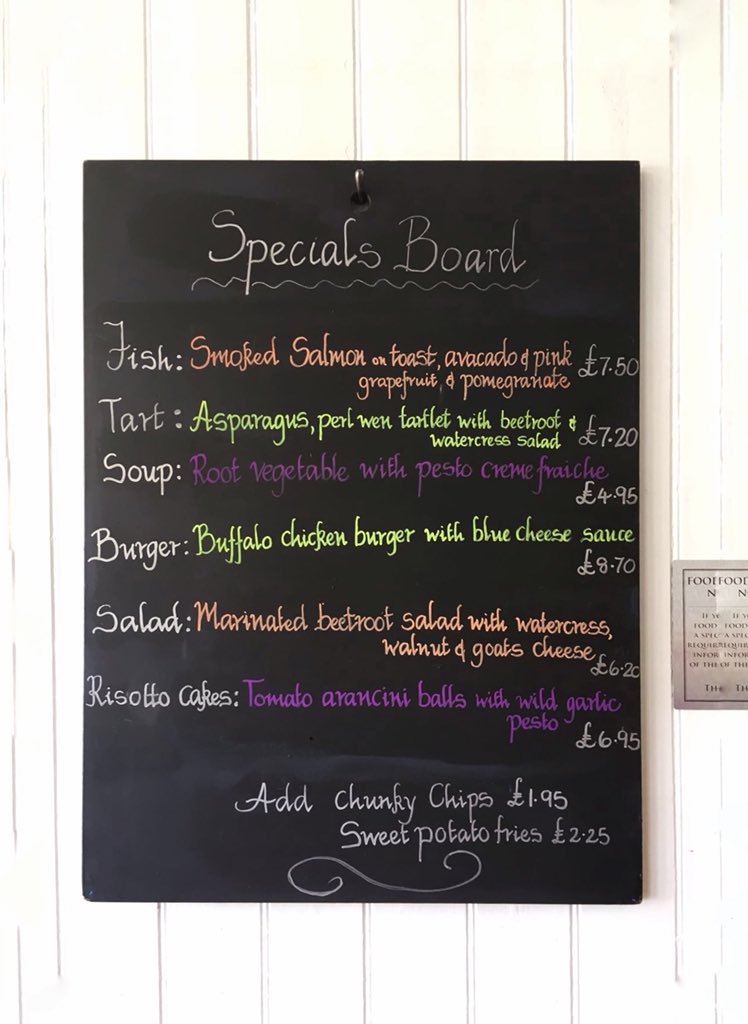 Specials Board
Fish: Smoked Salmon on toast, avacado & pink £7.50
grapefruit, & pomegranate
Tart: Asparagus, perl wen tartlet with beetroot &
watercress salad £7.20
Soup: Root vegetable with pesto creme fraiche
£4.95
Burger: Buffalo chicken burger with blue cheese sauce
£8.70
Salad: Marinated beetroot salad with watercress,
walnut & goats cheese £6.20
Risotto Cakes: Tomato arancini balls with wild garlic
pesto
£6.95
Add Chunky Chips £1.95
Sweet potato fries £2.25
FOOD
FOOD
A SPEC
REQUIR
INFOR
OF THE